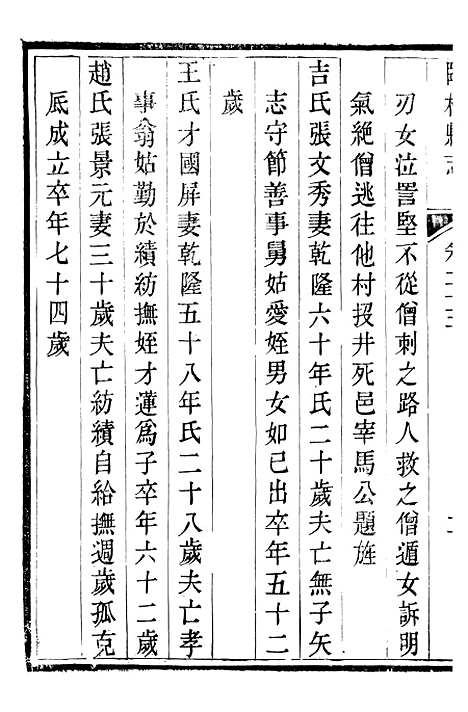 刃女泣詈堅不從僧刺之路人救之僧遁女訴明
氣絶僧逃往他村投井死邑宰馬公題旌
吉氏張文秀妻乾隆六十年氏二十歲夫亡無子矢
志守節善事舅姑愛姪男女如已出卒年五十二
歲
王氏才國屏妻乾隆五十八年氏二十八歲夫亡孝
事翁姑勤於績紡撫姪才蓮爲子卒年六十二歲
趙氏張景元妻三十歲夫亡紡績自給撫週歲孤克
底成立卒年七十四歲